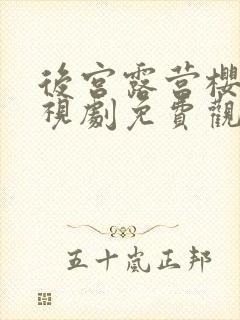 後宮露营櫻
視劇免費觀
五十嵐正邦